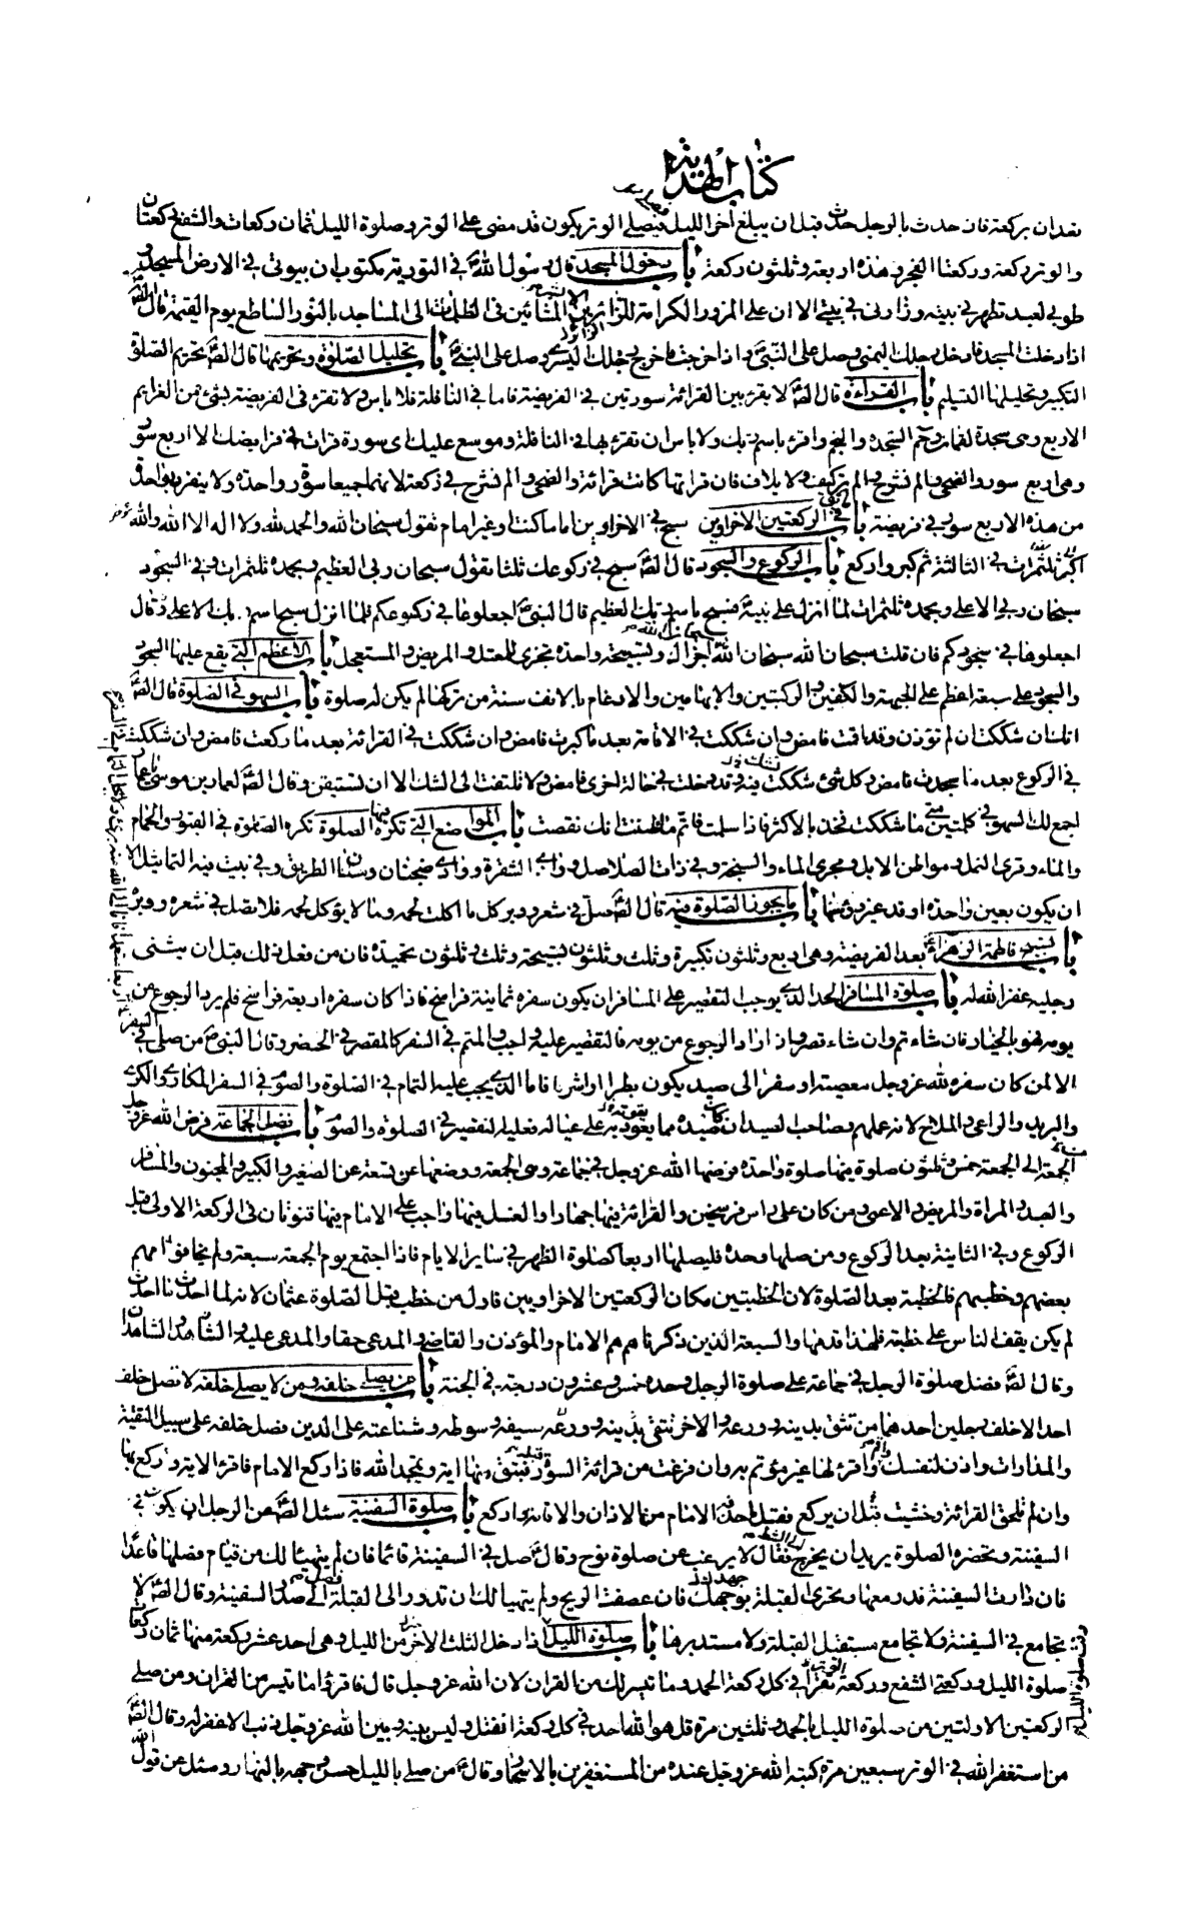 كتاب الهداية
تعدان بركعة فان حدث بالرجل حدث قبل ان يبلغ آخر الليل فيصلي الوتر يكون قد مضى على الوتر وصلوة الليل ثمان ركعات والشفع ركعتان
والوتر ركعة وركعتا الفجر فهذه اربعة وثلثون ركعة باب دخول المسجد قال رسول الله ص في التورية مكتوب ان بيوتي في الارض المساجد و
طوبى لعبد تطهر في بيته وزارني في بيتي الا ان على المزور كرامة الزائر الا بشر المشائين في الظلمات الى المساجد بالنور الساطع يوم القيمة قال الص
اذا دخلت المسجد فادخل رجلك اليمنى وصل على النبي ص واذا خرجت فاخرج رجلك اليسرى وصل على النبي ص باب تحليل الصلوة وتحريمها قال الص تحريم الصلوة
التكبير وتحليلها التسليم باب القراءة قال الص لا يقرء بين القرائة سورتين في الفريضة فاما في النافلة فلا باس ولا تقرء في الفريضة بشئ من العزايم
الاربع وهي سجدة لقمان وحم السجدة والنجم واقرء باسم ربك ولا باس ان تقرء بها في النافلة وموسع عليك اي سورة قرات في فرايضك الا اربع سور
وهي اربع سور والضحى والم نشرح والم تركيف ولايلاف فان قراتها كانت قرائة والضحى والم نشرح في ركعة لانهما جميعا سورة واحدة ولا ينفرد بواحدة
من هذه الاربع سور في فريضة باب في الركعتين الاخراوين سبح في الاخراوين اماما كنت او غير امام تقول سبحان الله والحمد لله ولا اله الا الله والله
اكبر ثلث مرات في الثالثة ثم كبر واركع باب الركوع والسجود قال الص سبح في ركوعك ثلثا تقول سبحان ربي العظيم وبحمده ثلث مرات وفي السجود
سبحان ربي الاعلى وبحمده ثلث مرات لما انزل على نبيه فسبح باسم ربك العظيم قال النبي ص اجعلوها في ركوعكم فلما انزل سبح اسم ربك الاعلى قال
اجعلوها في سجودكم فان قلت سبحان الله سبحان الله سبحان الله اجزاك وتسبيحة واحدة تجزي للمعتل والمريض والمستعجل باب الاعظم التي يقع عليها السجود
والسجود على سبعة اعظم على الجبهة والكفين والركبتين والابهامين والارغام بالانف سنة من تركها لم يكن له صلوة باب السهو في الصلوة قال الص
انك ان شككت ان لم تؤذن وقد اقمت فامض وان شككت في الاقامة بعد ما كبرت فامض وان شككت في القرائة بعد ما ركعت فامض وان شككت
في الركوع بعد ما سجدت فامض وكل شئ شككت فيه وقد دخلت في حالة اخرى فامض ولا تلتفت الى الشك الا ان تستيقن وقال الص لعمار بن موسى يا عمار
اجمع لك السهو في كلمتين متى ما شككت فخذ بالاكثر فاذا سلمت فاتم ما ظننت انك نقصت باب المواضع التي تكره فيها الصلوة تكره الصلوة في القبور والحمام
والماء وقرى النمل ومواطن الابل ومجرى الماء والسبخة وفي ذات الصلاصل ووادي الشقرة ووادي ضجنان ومسان الطريق وفي بيت فيه التماثيل الا
ان يكون بعين واحدة او قد غير رؤسها باب ما يجوز الصلوة فيه قال الص صل في شعر ووبر كل ما اكلت لحمه وما لا يؤكل لحمه فلا تصل في شعره ووبره
باب تسبيح فاطمة الزهراء ع بعد الفريضة وهي اربع وثلثون تكبيرة وثلث وثلثون تسبيحة وثلث وثلثون تحميدة فان من فعل ذلك قبل ان يثني
رجليه غفر الله له باب صلوة المسافر الحد الذي يوجب التقصير على المسافر ان يكون سفره ثمانية فراسخ فاذا كان سفره اربعة فراسخ فلم يرد الرجوع من
يومه فهو بالخيار فان شاء تم وان شاء قصر واذا اراد الرجوع من يومه فالتقصير عليه واجب والمتم في السفر كالمقصر في الحضر وقال النبي ص من صلى في السفر
الا لمن كان سفره لله عز وجل معصية او سفرا الى صيد يكون بطرا او اشرا فاما الذي يجب عليه التمام في الصلوة والصوم في السفر المكاري والكري
والبريد والراعي والملاح لانه عملهم وصاحب الصيد ان كان صيده مما يعود به على عياله فعليه التقصير في الصلوة والصوم باب فضل الجماعة فرض الله عز وجل
الجمعة الى الجمعة خمس وثلثون صلوة فيها صلوة واحدة فرضها الله عز وجل في جماعة وهي الجمعة ووضعها عن تسعة عن الصغير والكبير والمجنون والمسافر
والعبد والمراة والمريض والاعمى ومن كان على راس فرسخين والقرائة فيها جهار والغسل فيها واجب على الامام فيها قنوتان في الركعة الاولى قبل
الركوع وفي الثانية بعد الركوع ومن صلها وحده فليصلها اربعا كصلوة الظهر في ساير الايام فاذا اجتمع يوم الجمعة سبعة ولم يخافوا امهم
بعضهم وخطبهم فالخطبة بعد الصلوة لان الخطبتين مكان الركعتين الاخراوين فاول من خطب قبل الصلوة عثمان لانه لما احدث ما احدث
لم يكن يقف الناس على خطبته فلهذا قدمها والسبعة الذين ذكرناهم هم الامام والمؤذن والقاضي والمدعي حقا والمدعى عليه والشاهدان
وقال الص فضل صلوة الرجل في جماعة على صلوة الرجل وحده خمس وعشرون درجة في الجنة باب من يصلى خلفه ومن لا يصلى خلفه لا تصل خلف
احد الا خلف رجلين احدهما من تثق بدينه وورعه والاخر تتقي بدينه وورعه سيفه وسوطه وشناعته على الدين فصل خلفه على سبيل التقية
والمدارات واذن لنفسك واقم واقرء لها غير مؤتم به وان فرغت من قرائة السورة قبله فبق منها اية ومجد الله فاذا ركع الامام فاقرء الاية واركع بها
وان لم تلحق القرائة وخشيت قبل ان يركع فقل ما حذفه الامام من الاذان والاقامة واركع باب صلوة السفينة سئل الص عن الرجل ان يكون في
السفينة وتحضره الصلوة يريد ان يخرج الى الشط فقال لا يرغب عن صلوة نوح وقال ص صل في السفينة قائما فان لم يتهيئا لك من قيام فصلها قاعدا
فان دارت السفينة فدر معها وتحرى القبلة بوجهك فان عصفت الريح ولم يتهيا لك ان تدور الى القبلة فصل الى صدر السفينة وقال الص لا
تجامع في السفينة ولا تجامع مستقبل القبلة ولا مستدبرها باب صلوة الليل اذا دخل الثلث الاخر من الليل وهي احد عشر ركعة منها ثمان ركعات
صلوة الليل وركعتي الشفع وركعة الوتر تقرا في كل ركعة الحمد وما تيسر لك من القران لان الله عز وجل قال فاقرؤا ما تيسر من القران ومن صلى
الركعتين الاولتين من صلوة الليل بالحمد وثلثين مرة قل هو الله احد في كل ركعة انفتل وليس بينه وبين الله عز وجل ذنب الا غفر له وقال الص
من استغفر الله في الوتر سبعين مرة كتبه الله عز وجل عنده من المستغفرين بالاسحار وقال ع من صلى بالليل حسن وجهه بالنهار وسئل عن قول الله
وقت صلوة الليل